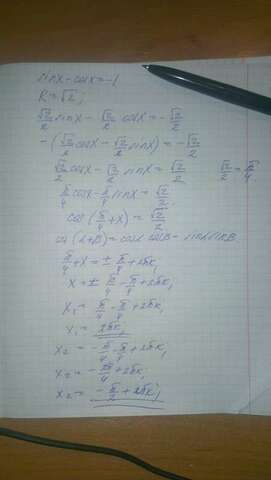 sinx - cosx = -1
R = √2;
√2/2 sinx - √2/2 cosx = -√2/2
-(√2/2 cosx - √2/2 sinx) = -√2/2
√2/2 cosx - √2/2 sinx = √2/2 √2/2 = π/4
π/4 cosx - π/4 sinx = √2/2;
cos(π/4 + x) = √2/2
cos(α+β) = cosα cosβ - sinα sinβ
π/4 + x = ± π/4 + 2πk;
x = ± π/4 - π/4 + 2πk;
x₁ = π/4 - π/4 + 2πk;
x₁ = 2πk;
x₂ = -π/4 - π/4 + 2πk;
x₂ = -2π/4 + 2πk;
x₂ = -π/2 + 2πk;